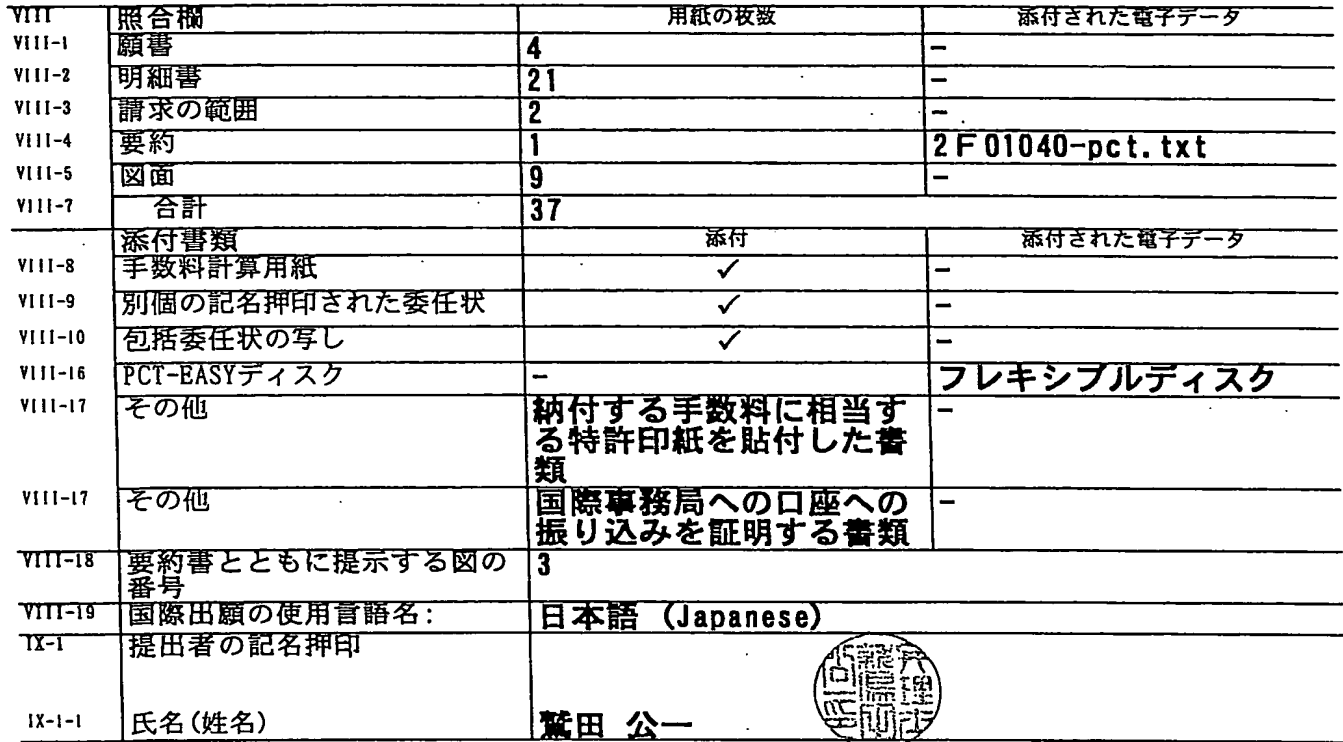 VIII 照合欄 用紙の枚数 添付された電子データ
VIII-1 願書 4 -
VIII-2 明細書 21 -
VIII-3 請求の範囲 2 -
VIII-4 要約 1 2F01040-pct.txt
VIII-5 図面 9 -
VIII-7 合計 37
添付書類 添付 添付された電子データ
VIII-8 手数料計算用紙 ✓ -
VIII-9 別個の記名押印された委任状 ✓ -
VIII-10 包括委任状の写し ✓ -
VIII-16 PCT-EASYディスク - フレキシブルディスク
VIII-17 その他 納付する手数料に相当す -
る特許印紙を貼付した書
類
VIII-17 その他 国際事務局への口座への -
振り込みを証明する書類
VIII-18 要約書とともに提示する図の 3
番号
VIII-19 国際出願の使用言語名: 日本語 (Japanese)
IX-1 提出者の記名押印
IX-1-1 氏名(姓名) 鷲田 公一